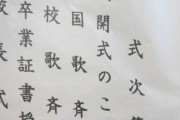 式次第
開式のこ
国歌斉
校歌斉
卒業証書授
長